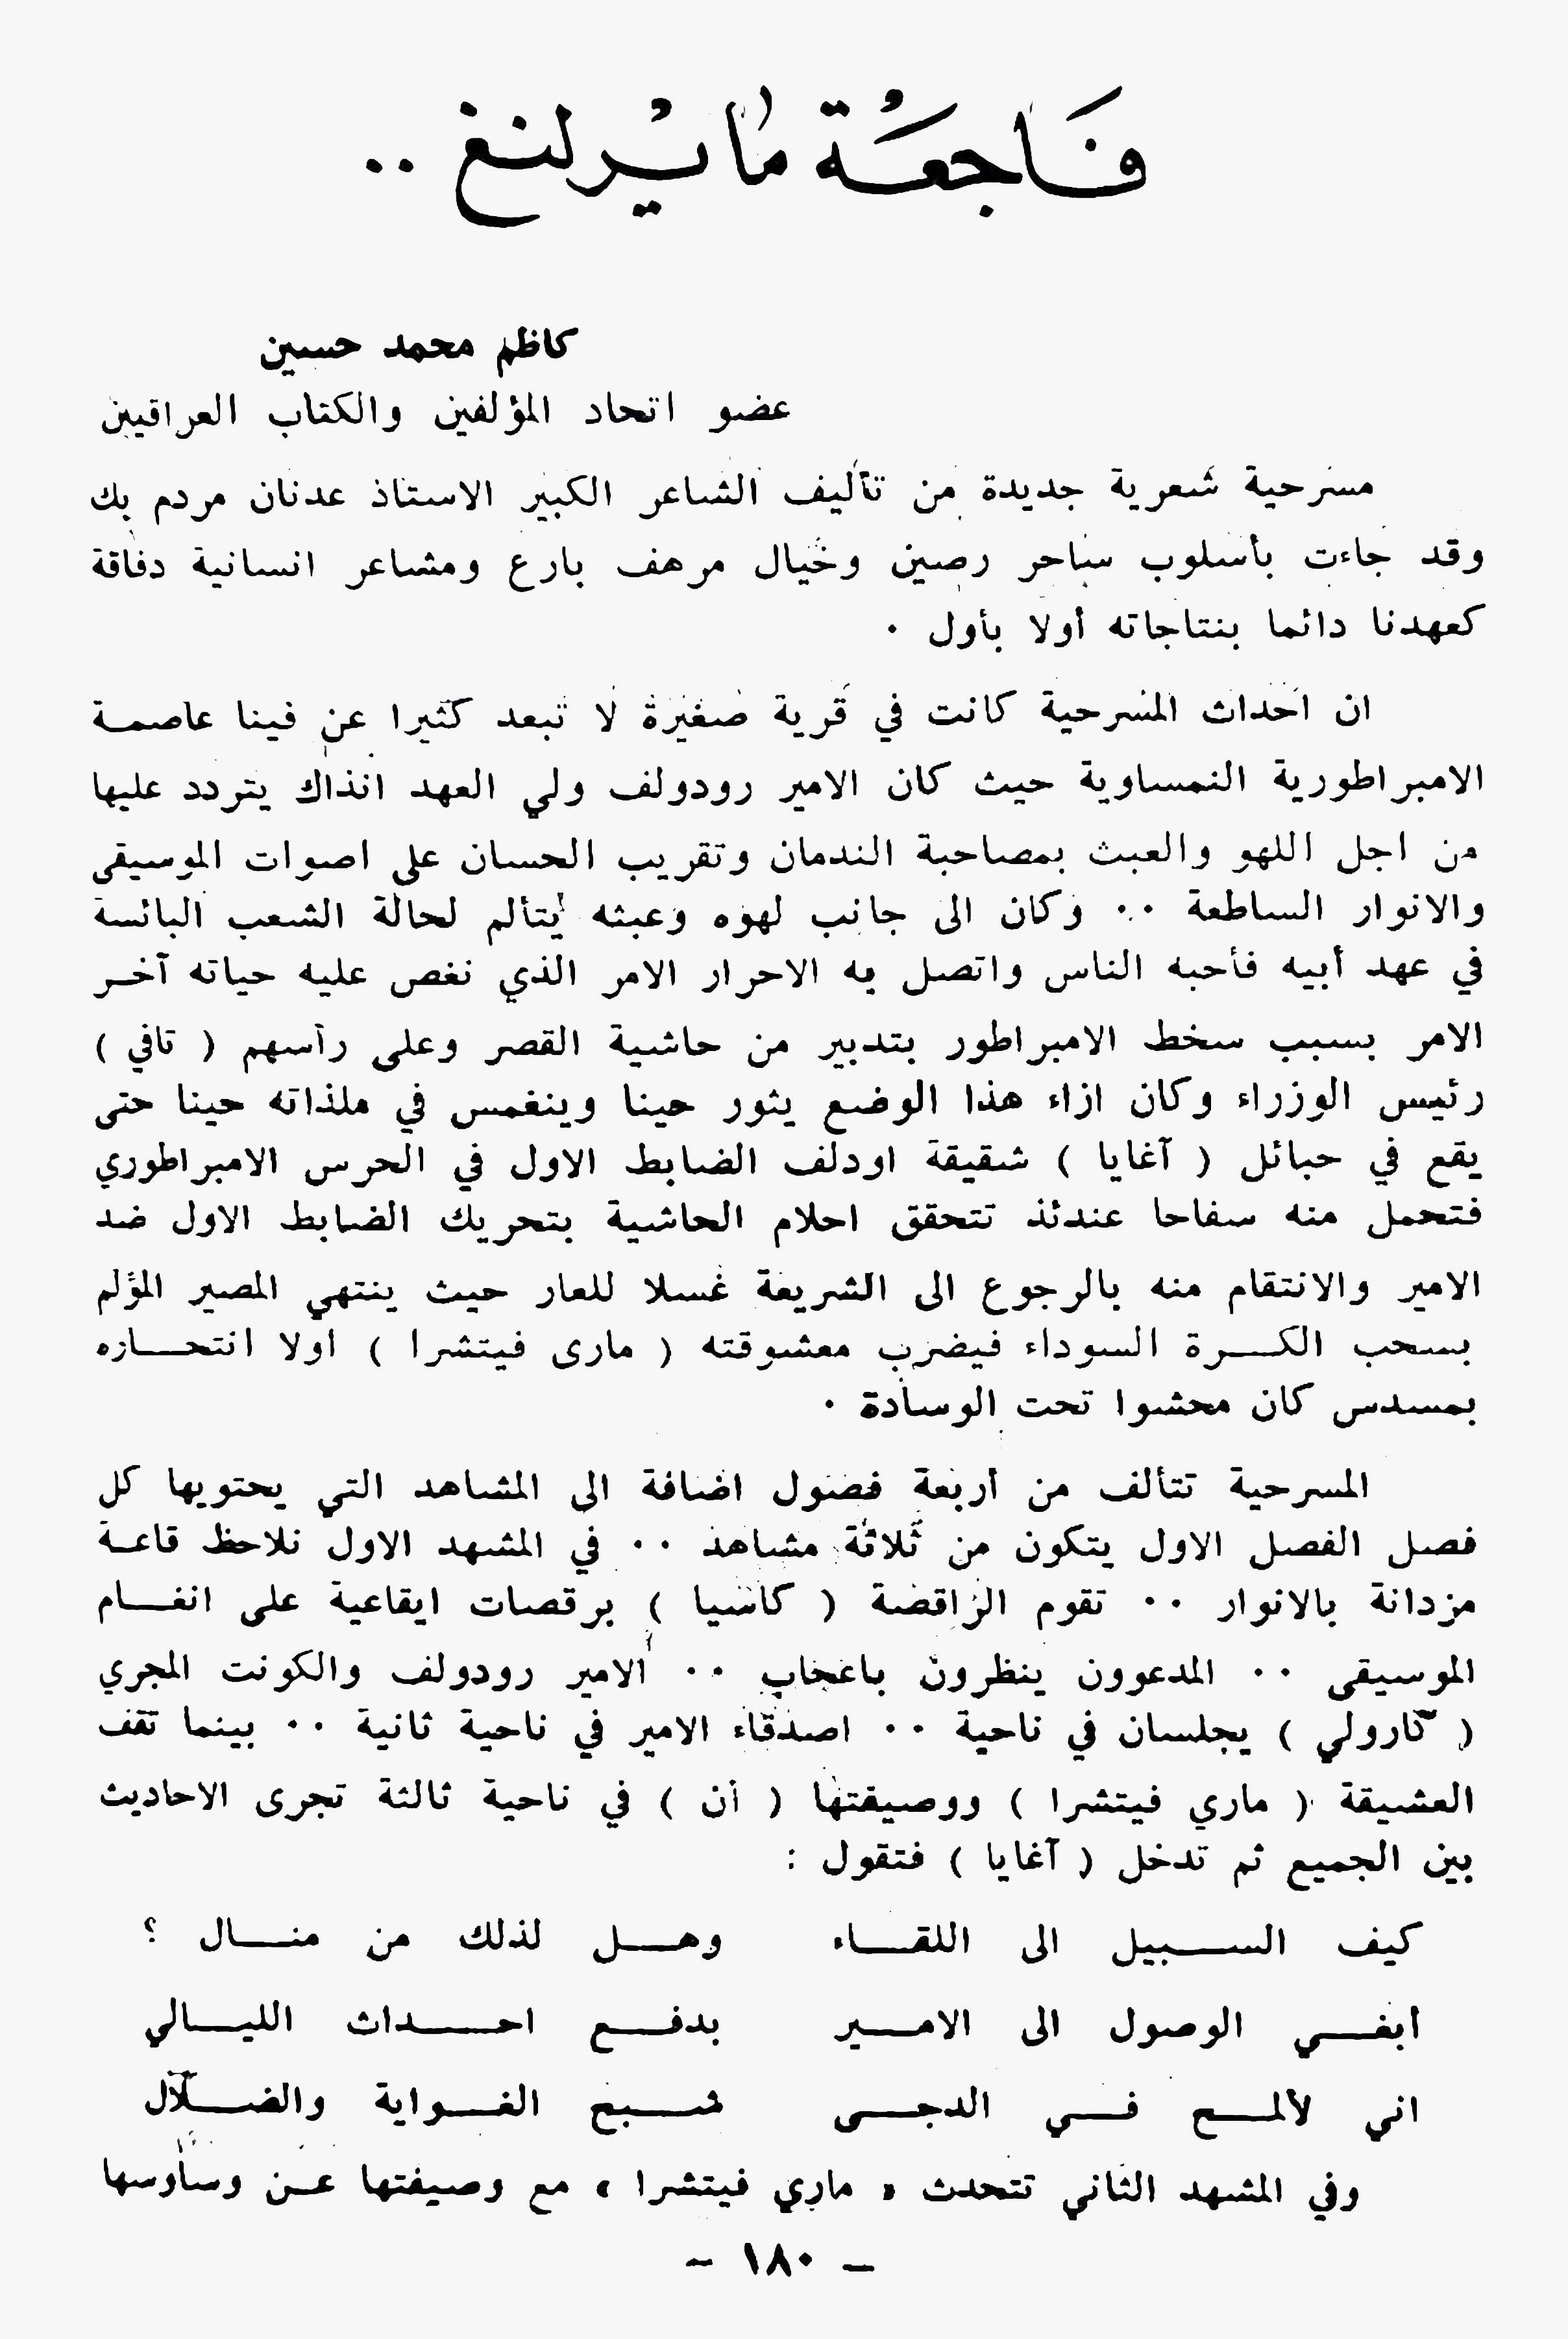 فَاجعَة مَايْرلنغ ..
كاظم محمد حسين
عضو اتحاد المؤلفين والكتاب العراقيين
مسرحية شعرية جديدة من تأليف الشاعر الكبير الاستاذ عدنان مردم بك
وقد جاءت بأسلوب ساحر رصين وخيال مرهف بارع ومشاعر انسانية دفاقة
كعهدنا دائما بنتاجاته أولا بأول .
ان احداث المسرحية كانت في قرية صغيرة لا تبعد كثيرا عن فينا عاصمة
الامبراطورية النمساوية حيث كان الامير رودولف ولي العهد انذاك يتردد عليها
من اجل اللهو والعبث بمصاحبة الندمان وتقريب الحسان على اصوات الموسيقى
والانوار الساطعة .. وكان الى جانب لهوه وعبثه يتألم لحالة الشعب البائسة
في عهد أبيه فأحبه الناس واتصل به الاحرار الامر الذي نغص عليه حياته آخر
الامر بسبب سخط الامبراطور بتدبير من حاشية القصر وعلى رأسهم ( تافي )
رئيس الوزراء وكان ازاء هذا الوضع يثور حينا وينغمس في ملذاته حينا حتى
يقع في حبائل ( آغايا ) شقيقة اودلف الضابط الاول في الحرس الامبراطوري
فتحمل منه سفاحا عندئذ تتحقق احلام الحاشية بتحريك الضابط الاول ضد
الامير والانتقام منه بالرجوع الى الشريعة غسلا للعار حيث ينتهي المصير المؤلم
بسحب الكرة السوداء فيضرب معشوقته ( مارى فيتشرا ) اولا انتحاره
بمسدس كان محشوا تحت الوسادة .
المسرحية تتألف من أربعة فصول اضافة الى المشاهد التي يحتويها كل
فصل الفصل الاول يتكون من ثلاثة مشاهد .. في المشهد الاول نلاحظ قاعة
مزدانة بالانوار .. تقوم الراقصة ( كاسيا ) برقصات ايقاعية على انغام
الموسيقى .. المدعوون ينظرون باعجاب .. الامير رودولف والكونت المجري
( كارولي ) يجلسان في ناحية .. اصدقاء الامير في ناحية ثانية .. بينما تقف
العشيقة ( ماري فيتشرا ) ووصيفتها ( أن ) في ناحية ثالثة تجرى الاحاديث
بين الجميع ثم تدخل ( آغايا ) فتقول :
كيف السبيل الى اللقاء وهل لذلك من منال ؟
أبغي الوصول الى الامير بدفع احداث الليالي
اني لألمح في الدجى شبح الغواية والضلال
وفي المشهد الثاني تتحدث « ماري فيتشرا » مع وصيفتها عن وساوسها
- ١٨٠ -